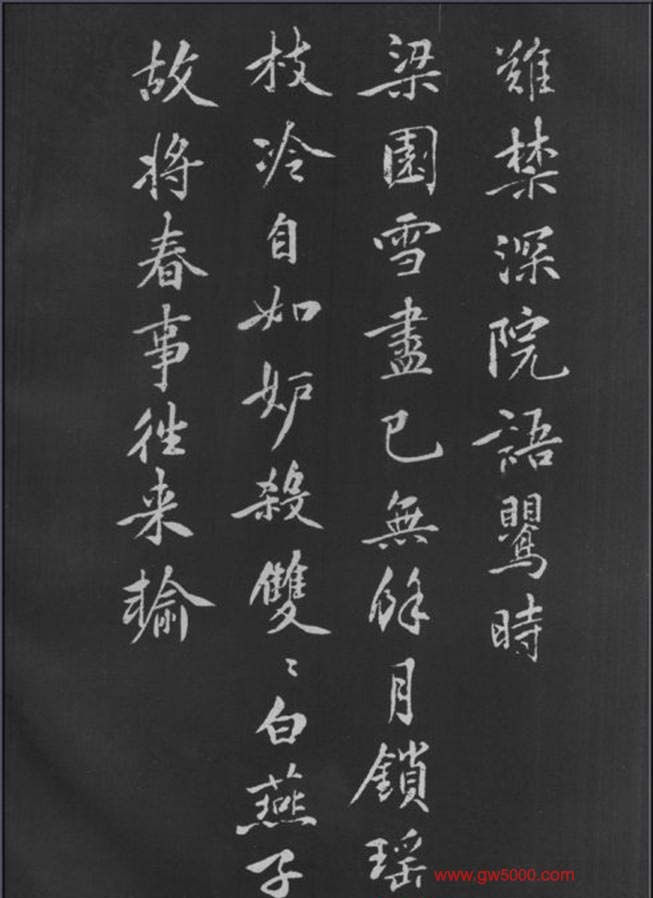 難禁深院語鶯時
梁園雪盡已無餘月鎖瑶
枝冷自如妒殺雙〻白燕子
故將春事往来輸
www.gw5000.com